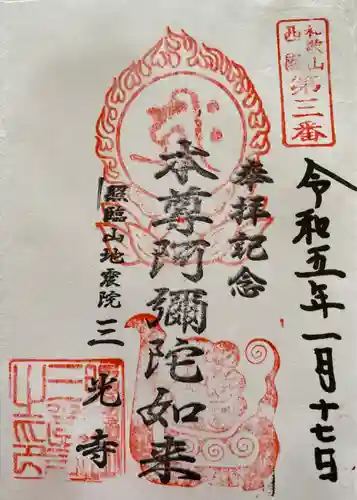 和歌山
西国
第三番
令和五年一月十七日
奉拝記念
本尊阿彌陀如来
照臨山地震院
三光寺